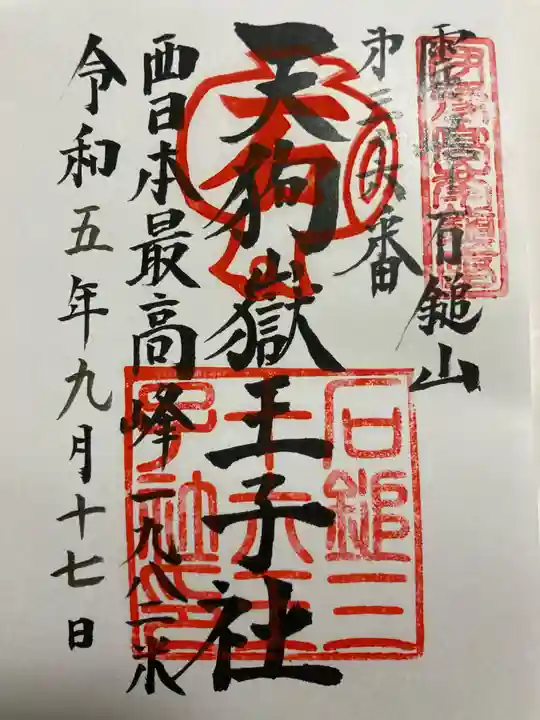 霊峰石鎚山
㐧三十六番
天狗嶽王子社
西日本最高峰一九八二米
令和五年九月十七日
石鎚三
十六王
子社之印